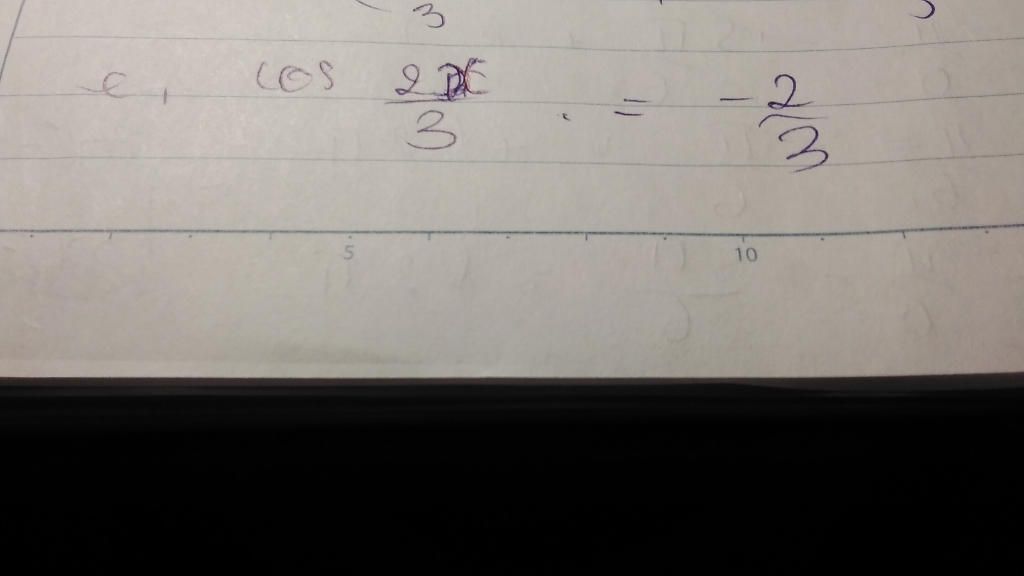 3
c, cos 2x/3 = -2/3
5 10